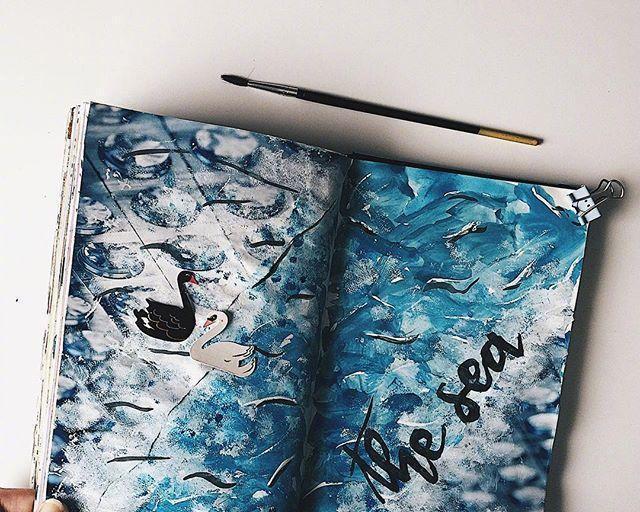 the sea